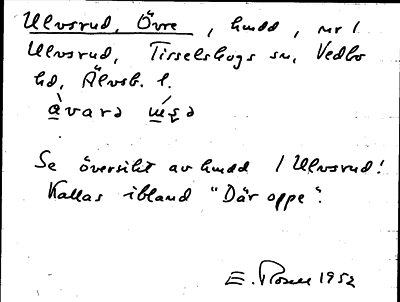 Ulvsrud, Övre, hmdd, nr 1
Ulvsrud, Tisselskogs sn, Vedbo
hd, Älvsb. l.
àvarə
Se översikt av hmdd i Ulvsrud!
Kallas ibland "Där oppe".
E. Rosell 1952